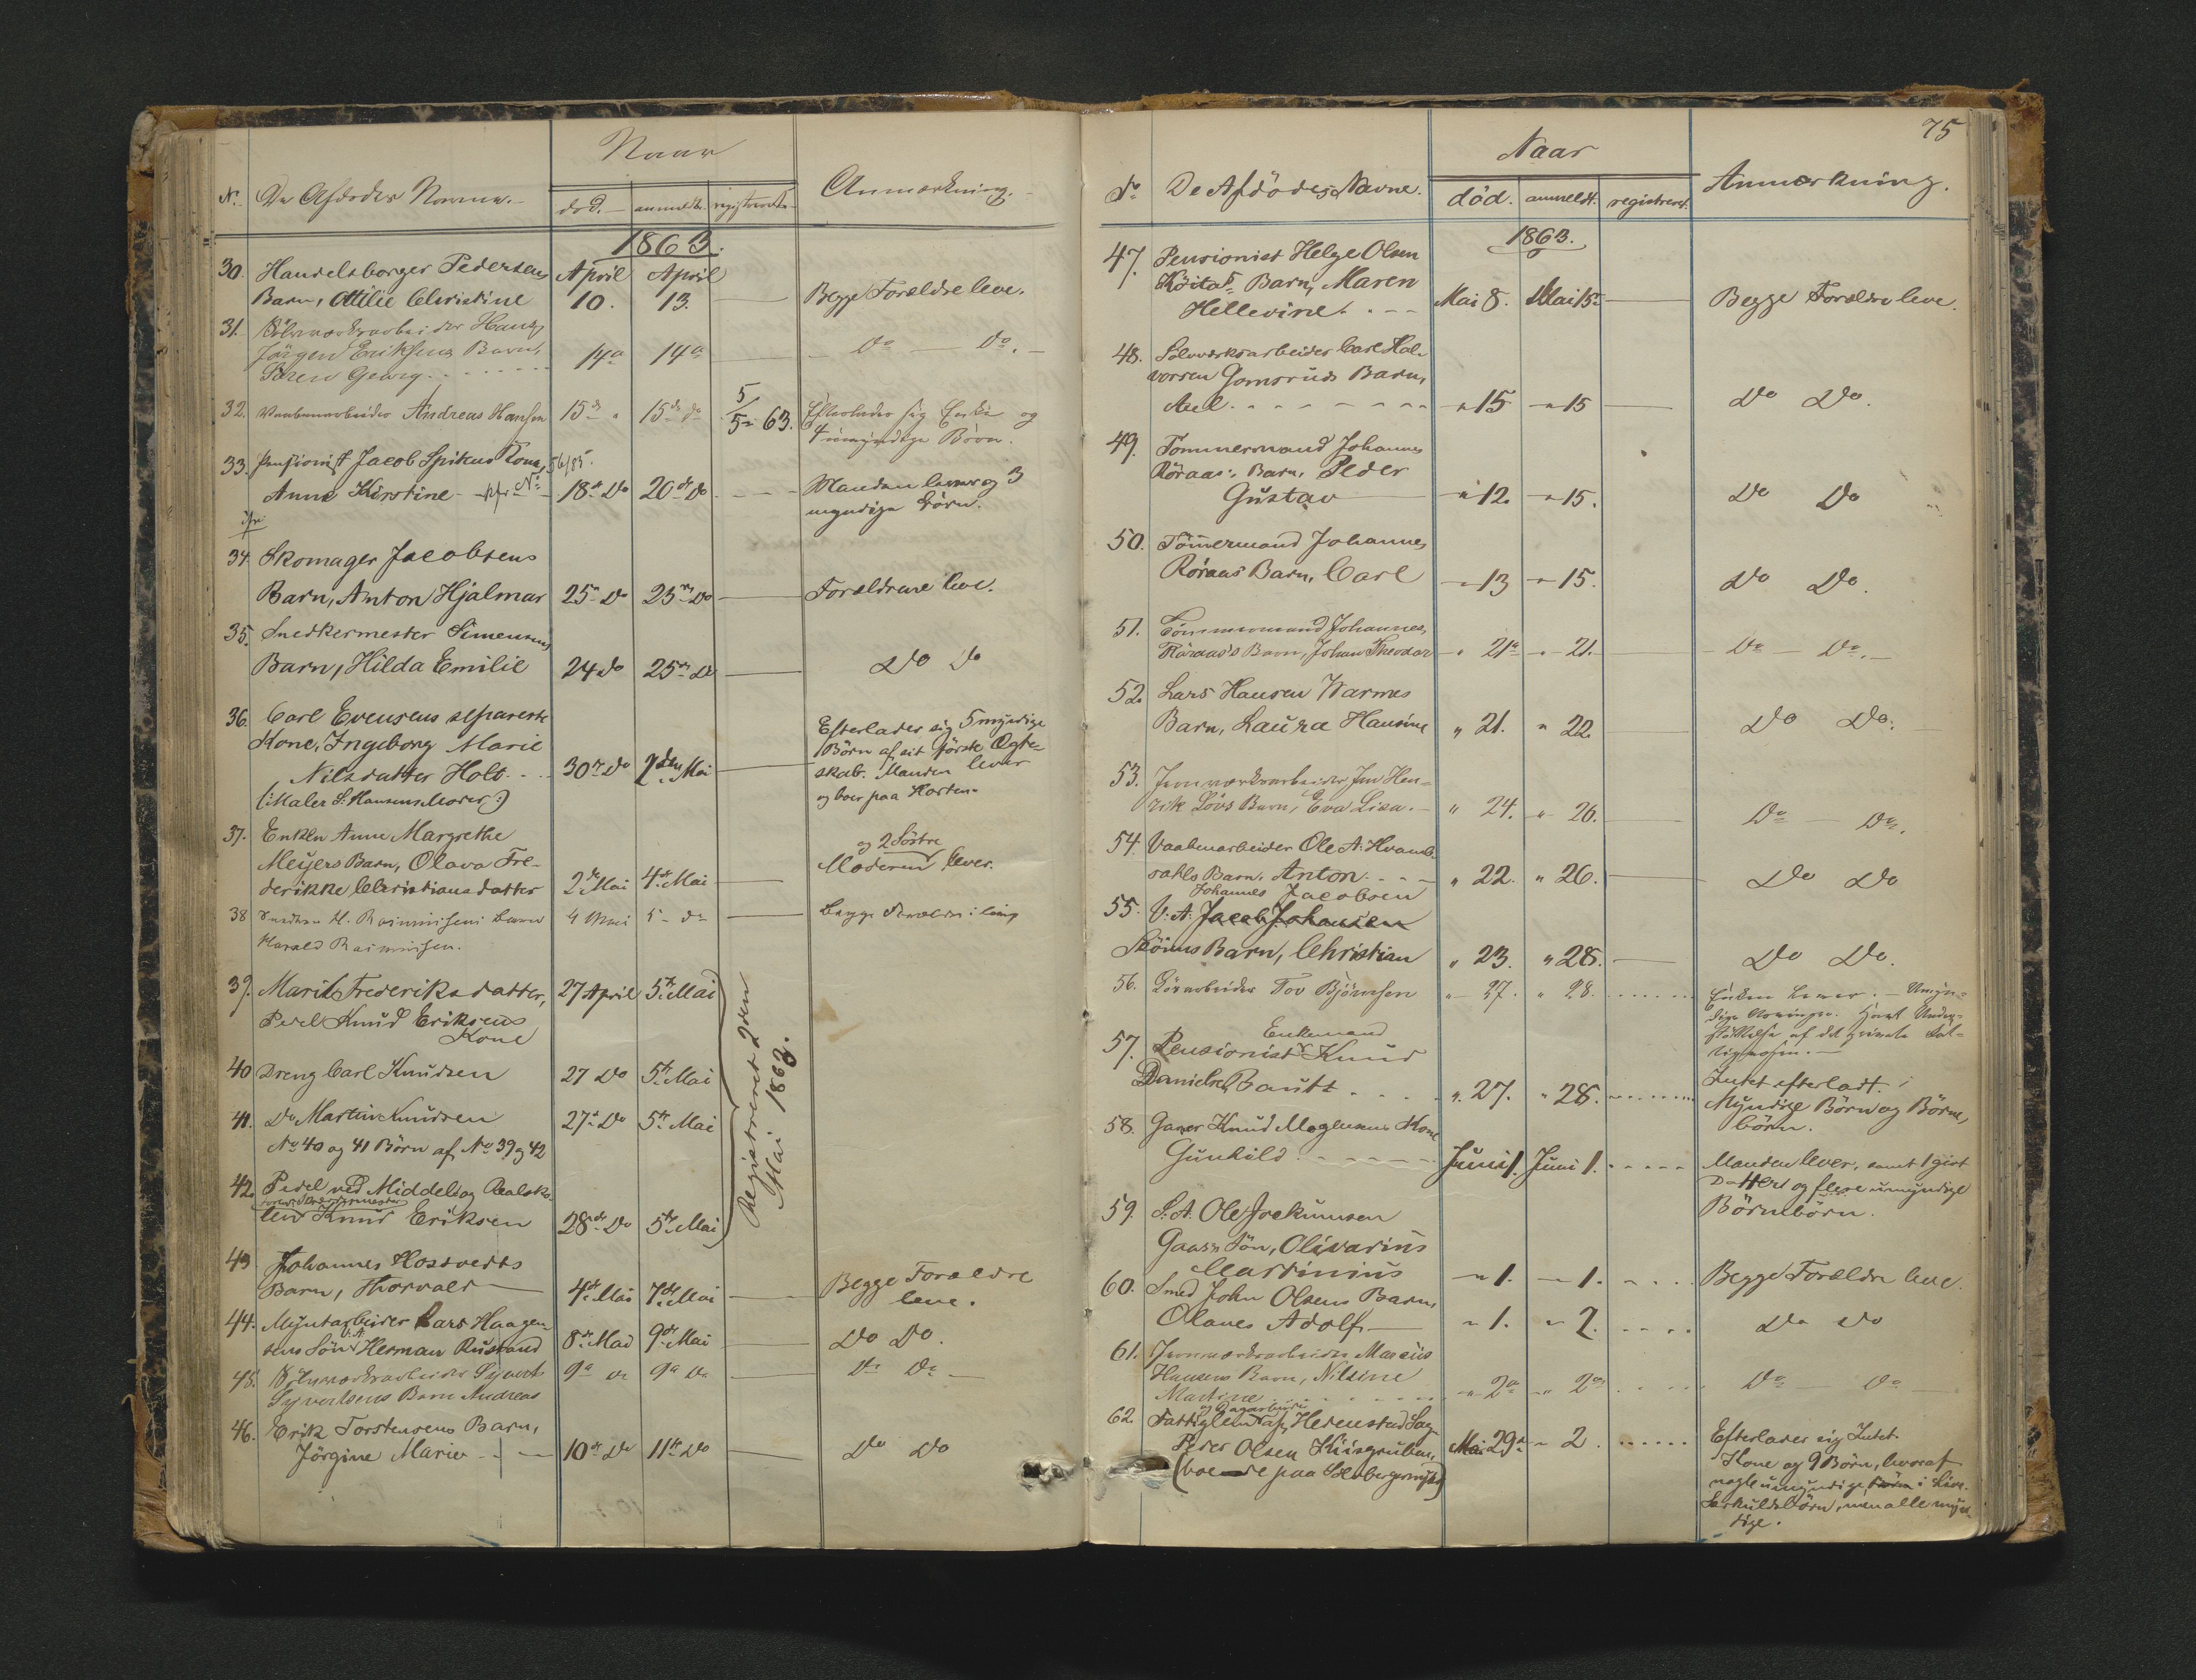 Naar
No. De Afdødes Navne. død. anmeldte. registrerede. Anmærkning.
1863.
30. Handelsborger Pedersens April April
Barn, Ottilie Christine 10. 13. Begge Forældre leve.
31. Sölvværksarbeider Hans
Jørgen Eriksens Barn, 14de 14de Do Do.
Søren Georg
32. Vaabenarbeider Andreas Hansen 15de " 15de do 5/5 63. Efterlader sig Enke og
4 umyndige Börn.
33. Pensionist Jacob Spikus Kone, 56/85.
Anne Kirstine 18de Do 20de Do Manden lever og 3
myndige Börn.
34. Skomager Jacobsens
Barn, Anton Hjalmar 25de Do 25de Do Forældrene leve.
35. Snedkermester Simensens
Barn, Hilda Emilie 24 do 25de Do Do Do
36. Carl Evensens separerte Efterlader sig 5 myndige
Kone, Ingeborg Marie Börn af sit förste Ægte-
Nilsdatter Holt 30te Do 2den Mai skab. Manden lever
(: Maler S. Hansens Moder :) og boer paa Horten.
37. Enken Anne Margrethe og 2 Söstre
Meyers Barn, Olava Fre- Moderen lever.
derikke Christiansdatter 2de Mai 4de Mai
38 Snedker H. Rasmussens Barn 4 Mai 5 do Begge Forældre i live
Harald Rasmussen.
39. Marie Frederiksdatter, 27 April 5te Mai
Pedel Knud Eriksens
Kone
Registreret 2den
Mai 1863.
40 Dreng Carl Knudsen 27 Do 5te Mai
41. Do Martin Knudsen 27de Do 5te Mai
No 40 og 41 Börn af No 39 og 42
42. Pedel ved Middel og Realsko-
len Knud Eriksen 28de Do 5te Mai
43 Johannes Hostvedts
Barn, Thorvald 4de Mai 7de Mai Begge Forældre
leve.
44. Myntarbeider Lars Haagen-
sens Sön V:A Herman Rustand 8de Mai 9de Mai Do Do.
45. Sölvværksarbeider Syvert 9de do 9de Do Do Do
Syvertsens Barn Andreas
46. Erik Torstensens Barn,
Jörgine Marie 10de Do 11te Do Do Do
75
Naar
No De Afdödes Navne. död. anmeldt. registreret. Anmærkning.
1863.
47. Pensionist Helge Olsen
Köitas Barn, Maren
Hellevine Mai 8. Mai 15 Begge Forældre leve.
48. Sölvværksarbeider Carl Hal-
vorsen Gomsruds Barn,
Axel " 15 " 15 Do Do.
49. Tömmermand Johannes
Röraas: Barn, Peder
Gustav " 12. " 15. Do Do
50. Tömmermand Johannes
Röraas' Barn, Carl " 13 " 15. Do Do.
51. Tömmermand Johannes
Röraas's Barn, Johan Theodor " 21de " 21. Do Do.
52. Lars Hansen Warmes
Barn, Laura Hansine " 21. " 22 Do Do.
53. Jernværksarbeider Jon Hen-
rik Lövs Barn, Eva Lisa. " 24. " 26. Do Do.
54. Vaabenarbeider Ole A. Hvamb-
sahls Barn, Anton " 22. " 26. Do Do
Johannes Jacobsen
55. V:A: Jacob Johansen
Skönns Barn, Christian " 23. " 28. Do Do.
56. Tov Björnsen " 27. " 28. Enken Lever. Umyn-
dige Arvinger. Havt Under-
støttelse af det private Fat-
tigvæsen.
Enkemand
57. Pensionist Knud
Danielsen Bautz " 27. " 28. Intet efterladt.
Myndige Börn og Börne-
börn.
58. Gaver Knud Mogensens Kone
Gunhild Juni 1. Juni 1. Manden lever, samt 1 gift
Datter og flere umyndige
Börnebörn.
59. S:A. Ole Jockumsen
Gaasn Sön, Olivarius
Martinius " 1. " 1. Begge Forældre leve.
60. Smed John Olsens Barn,
Olaves Adolf " 1. " 2. Do Do
61. Jernværksarbeider Marcus
Hansens Barn, Nilsine
Martine " 2de " 2de Do Do
og Dagarbeider
62. Fattiglem af Hedenstad Sog
Peder Olsen Kisgruben, Mai 29de " 2. Efterlader sig Intet.
(boende paa Solbergmyhr) Kone og 9 Börn, hvoraf
nogle umyndige Börn i Live.
Særkuldsbörn, men alle myn-
dige.